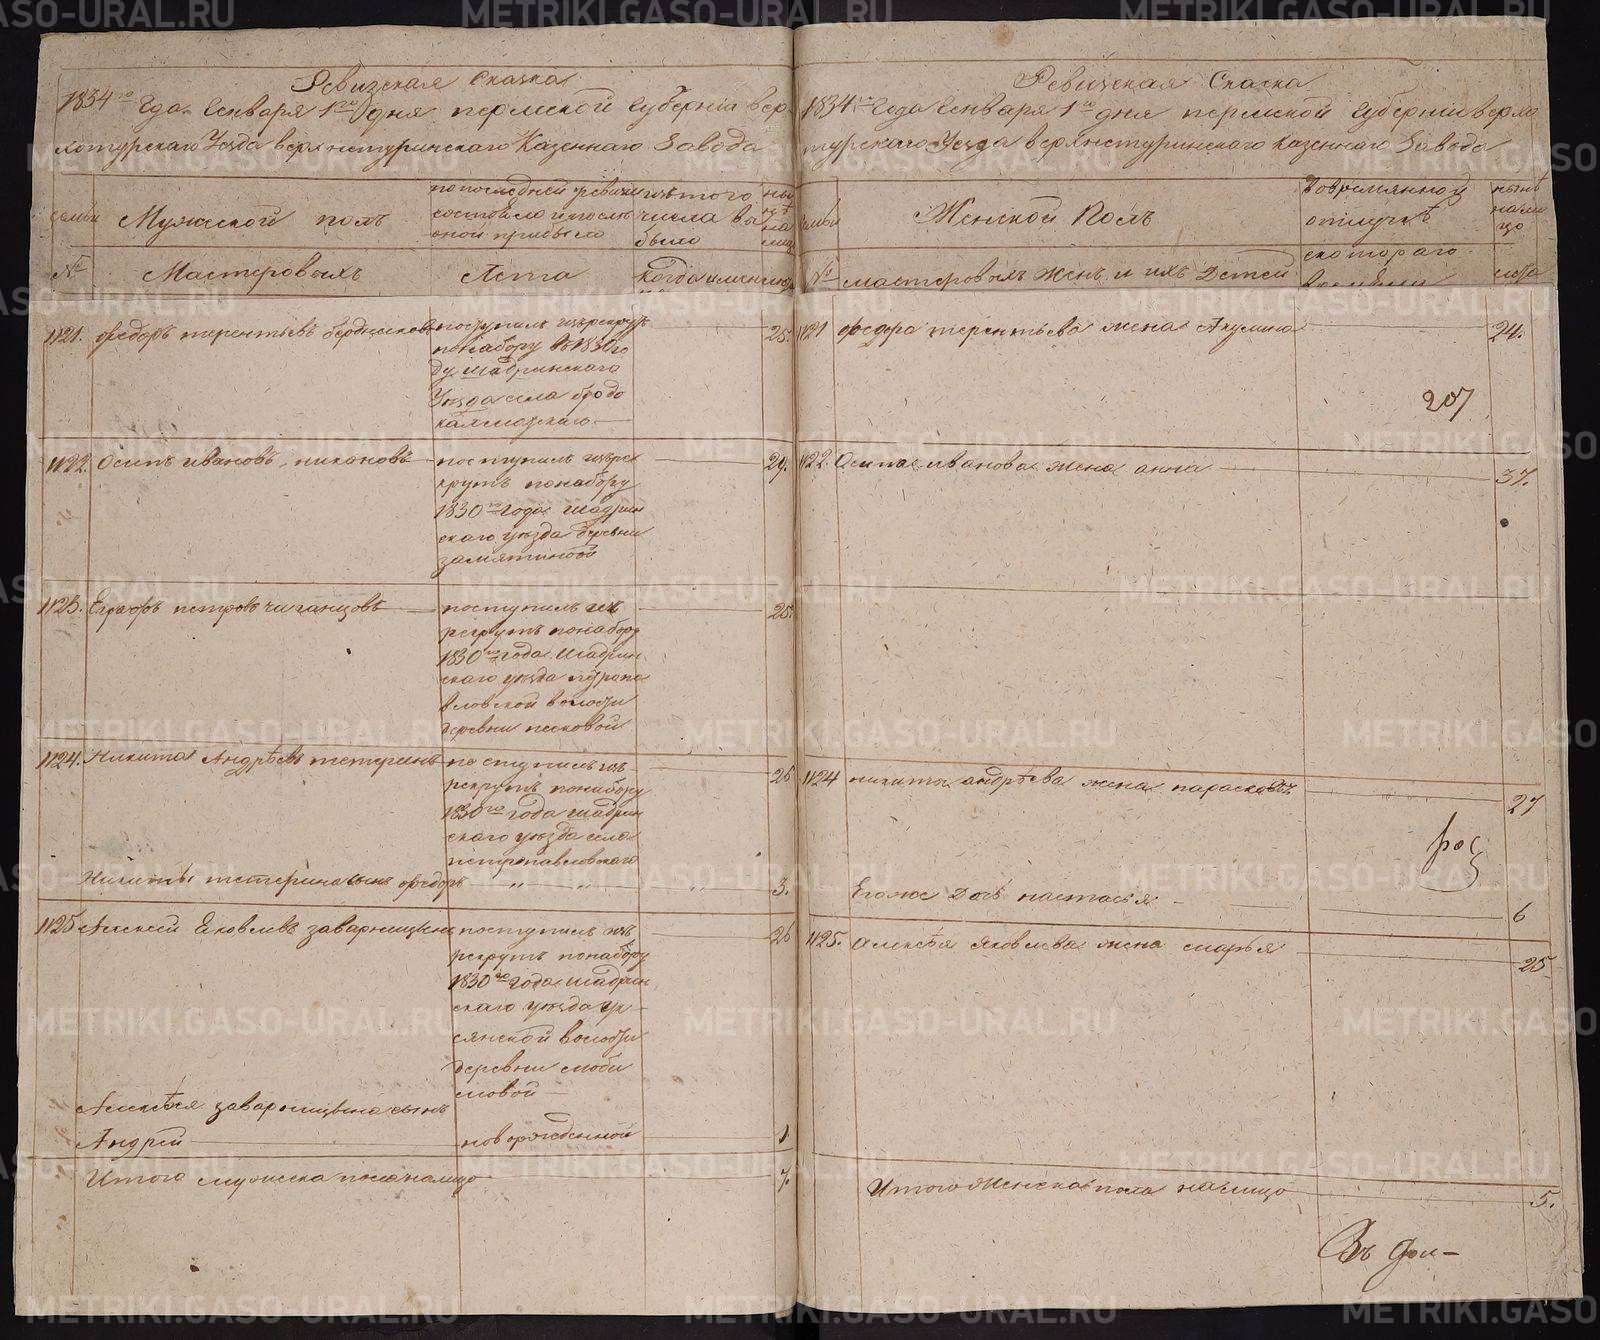 Ревизская Сказка
1834го Года Генваря 1го дня пермской губернiи вер
хотурскаго Уезда верхнетуринскаго Казеннаго Завода
семьи
Мужеской полъ
по последней ревизiи
состояло и после
оной прибыло
изъ того
числа вы
было
ны
не
на
лицо
№
Мастеровыхъ
Лета
Когда имянно
1121. Федоръ терентьевъ
поступилъ изъ рекрутъ
понабору въ 1830 го
ду шадринскаго
Уезда села бродо
калмацкаго
25.
1122. Осипъ ивановъ
поступилъ изъ рек
крутъ понабору
1830го года шадрин
скаго уезда деревни
замятиной
29.
1123. Егоръ петровъ
поступилъ изъ
рекрутъ понабору
1830го года шадрин
скаго уезда петропа
вловской волости
деревни песковой
25.
1124. Никита Андреевъ тетеринъ
поступилъ изъ
рекрутъ понабору
1830го года шадрин
скаго уезда села
петропавловскаго
26
Никиты тетерина сынъ федоръ
" " "
3.
1125 Алексей Яковлевъ
поступилъ изъ
рекрутъ понабору
1830го года шадрин
скаго уезда
волости
деревни
26
Алексея сынъ
Андрей
новорожденной
1
Итого мужеска пола налицо
7.
Ревизская Сказка
1834го Года Генваря 1го дня пермской губернiи верхо
турскаго Уезда верхнетуринскаго казеннаго Завода
семьи
Женской Полъ
Во временной
отлучке
ныне
нали
цо
№
мастеровыхъ женъ и ихъ Детей
скотораго
времени
лета
1121 федора терентьева жена Акулина
24.
207
1122. Осипа иванова жена анна
37.
1124 никиты андреева жена парасковья
27
Его же Дочь настасья
6
1125. Алексея яковлева жена марья
25
Итого женска пола налицо
5.